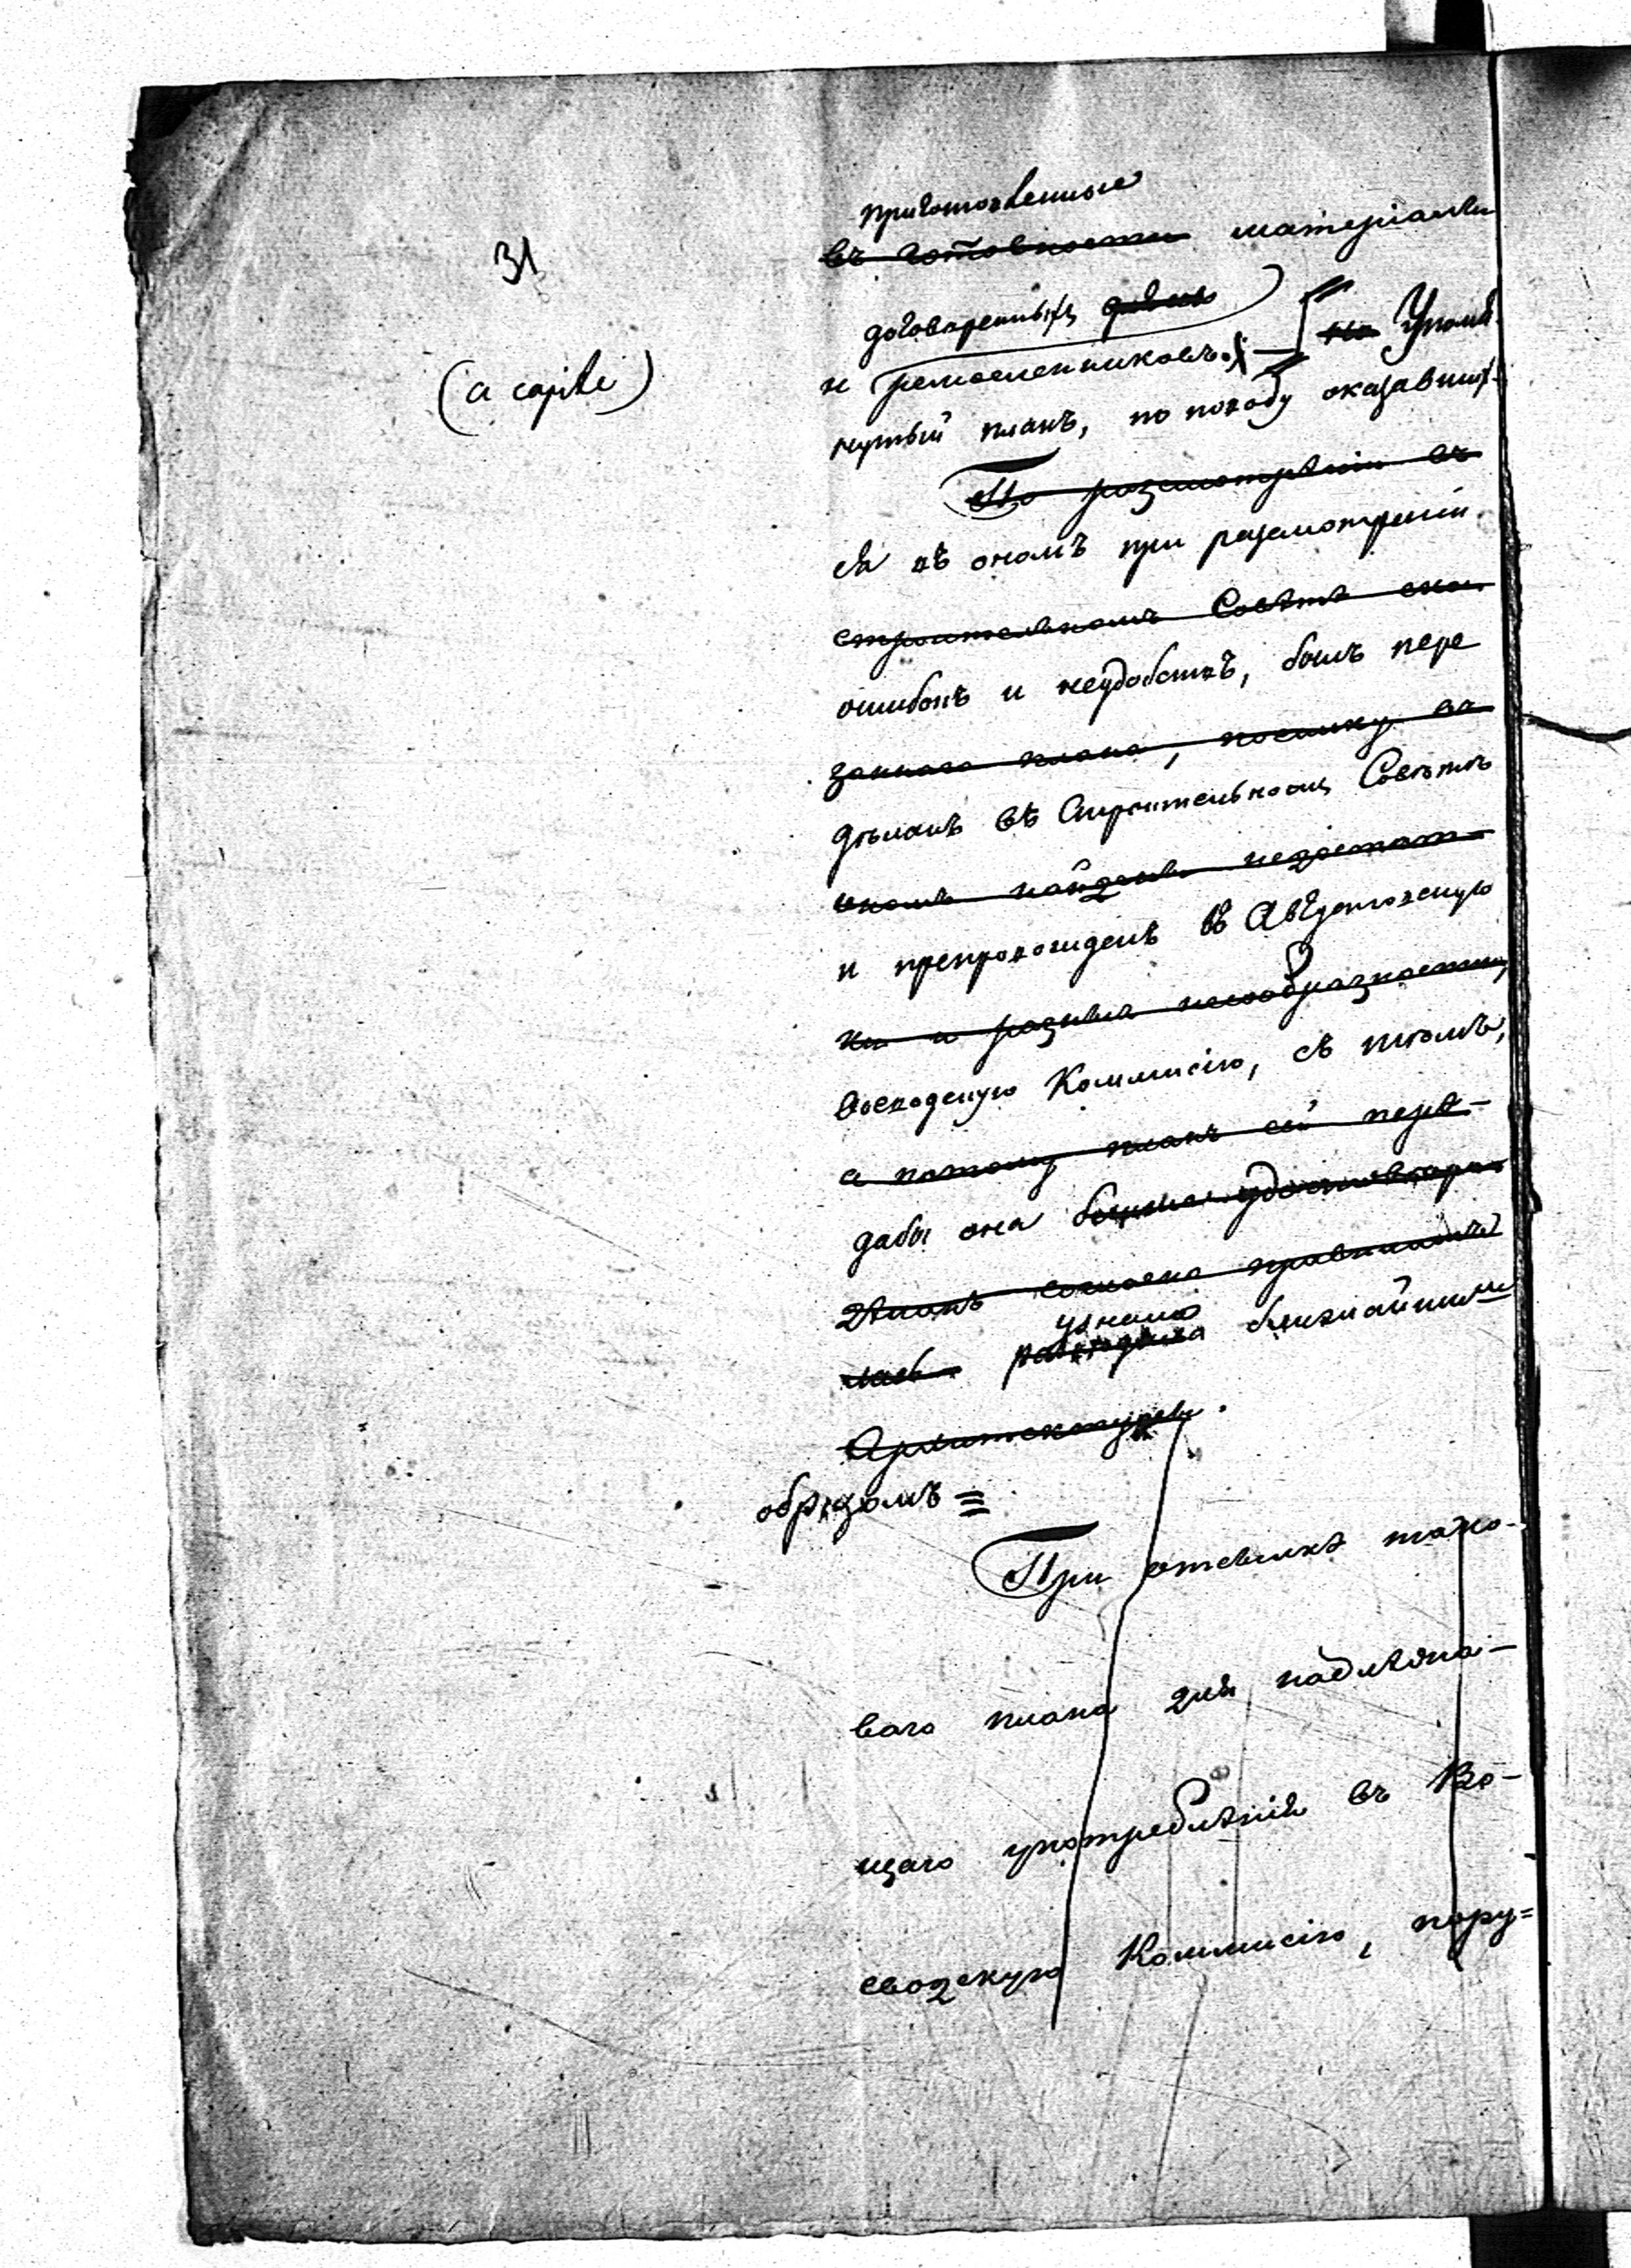 31
(a capite)
приготовленные
въ готовности матеріалы
договоренныхъ
и ремесленниковъ. Упомя-
нутый планъ, по поводу оказавших-
По разсмотрѣніи въ
ся въ ономъ при разсмотреніи
строительномъ Совѣтѣ ска-
ошибокъ и неудобствъ, былъ пере
заннаго плана, поелику въ
дѣланъ въ Строительномъ Совѣтѣ
ономъ найдены недостат-
и препровожденъ въ Аксднтовскую
ки и разныя несообразности,
Восводскую Коммисію, съ тѣмъ,
а потому планъ сей пере-
дабы она
дѣланъ согласно правиламъ
узнала ближайшимъ
Архитектуры.
образомъ
При отсылкѣ тако-
ваго плана для надлежа-
щаго употребленія въ Во-
еводскую Коммисію, пору-